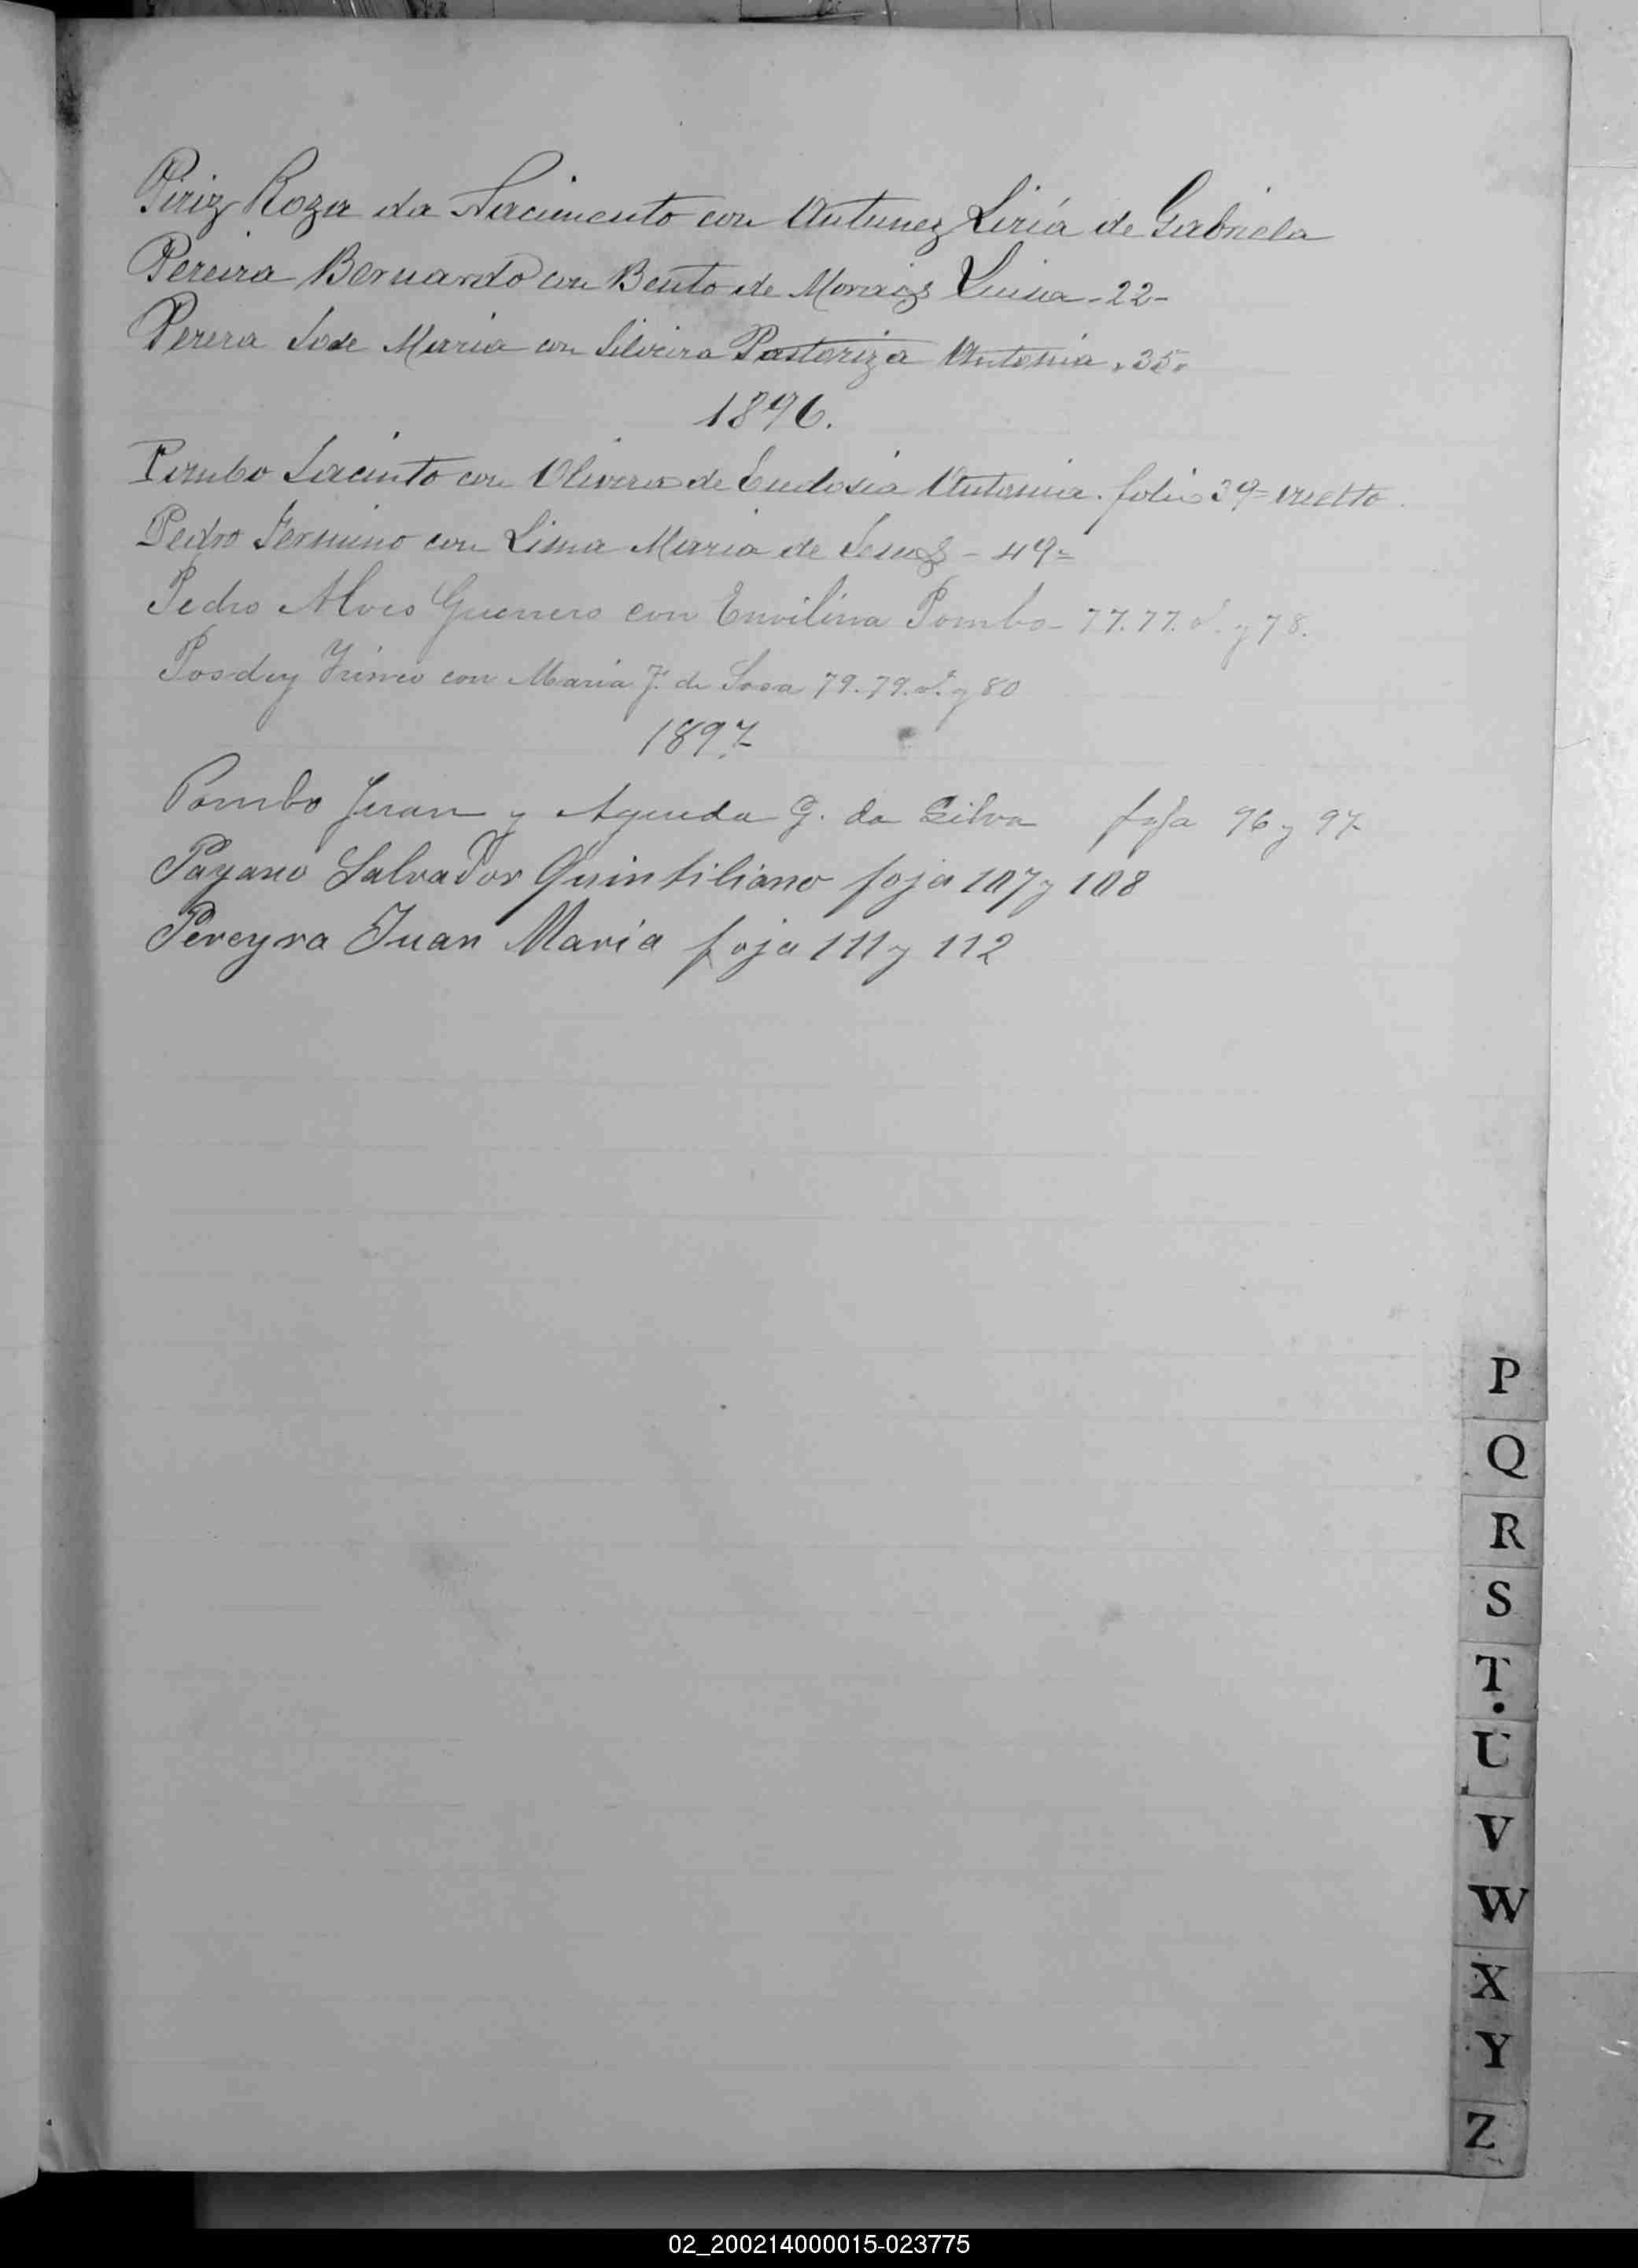 Piriz Roza da Nacimento con Antunez Liria de Gabriela
Pereira Bernardo con Bento de Moraes Luisa - 22 -
Perera Jose Maria con Silveira Pastoriza Antonia " 35 "
1896.
Pombo Jacinto con Olivera de Eudosia Antonia. folio 39 = vuelto.
Pedro Fermino con Lima Maria de Jesus - 49 =
Pedro Alves Guerrero con Envilina Pombo - 77. 77. v. y 78.
con Maria F. de Sosa 79. 79. v. y 80
1897
Pombo Juan y Agueda G. da Silva foja 96 y 97
Pagano Salvador Quintiliano foja 107 y 108
Pereyra Juan Maria foja 111 y 112
P
Q
R
S
T
U
V
W
X
Y
Z
02_200214000015-023775